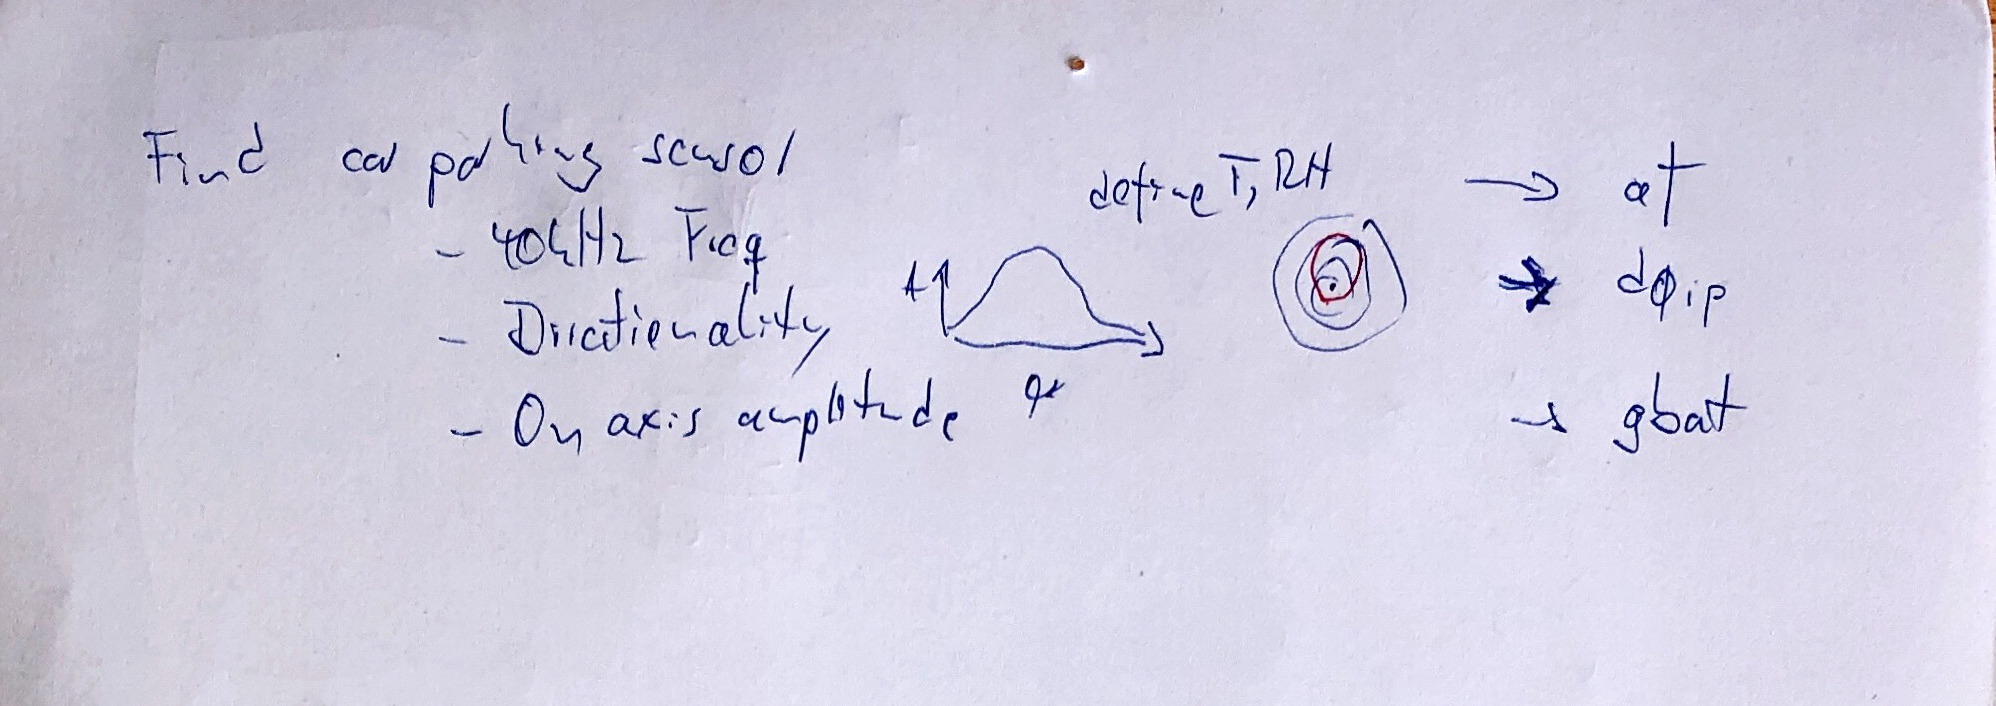 Find car parking sensor
- 40kHz Freq
- Directionality
- On axis amplitude
A
define T, RH
→ at
→
→ gbat